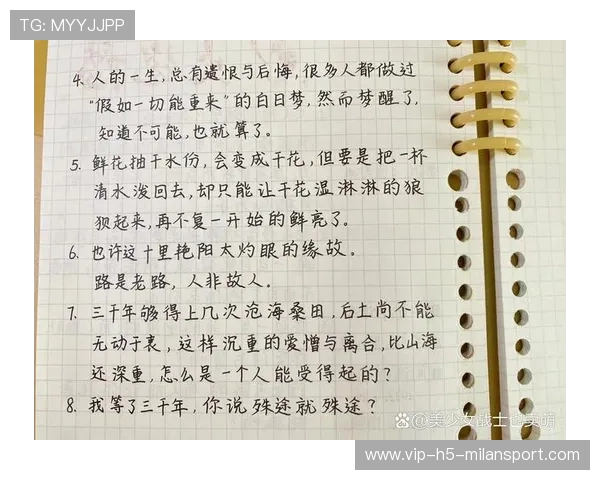 TG: MYYJJPP
4. 人的一生，总有遗恨与后悔，很多人都做过
“假如一切能重来”的白日梦，然而梦醒了，
知道不可能，也就算了。
5. 鲜花抽干水份，会变成干花，但要是把一杯
清水泼回去，却只能让干花湿淋淋的狼
狈起来，再不复一开始的鲜亮了。
6. 也许这十里艳阳太灼眼的缘故。
路是老路，人非故人。
7. 三千年够得上几次沧海桑田，后土尚不能
无动于衷，这样沉重的爱憎与离合，比山海
还深重，怎么是一个人能受得起的？
8. 我等了三千年，你说殊途就殊途？
@美少女战士也卖萌
www.vip-h5-milansport.com